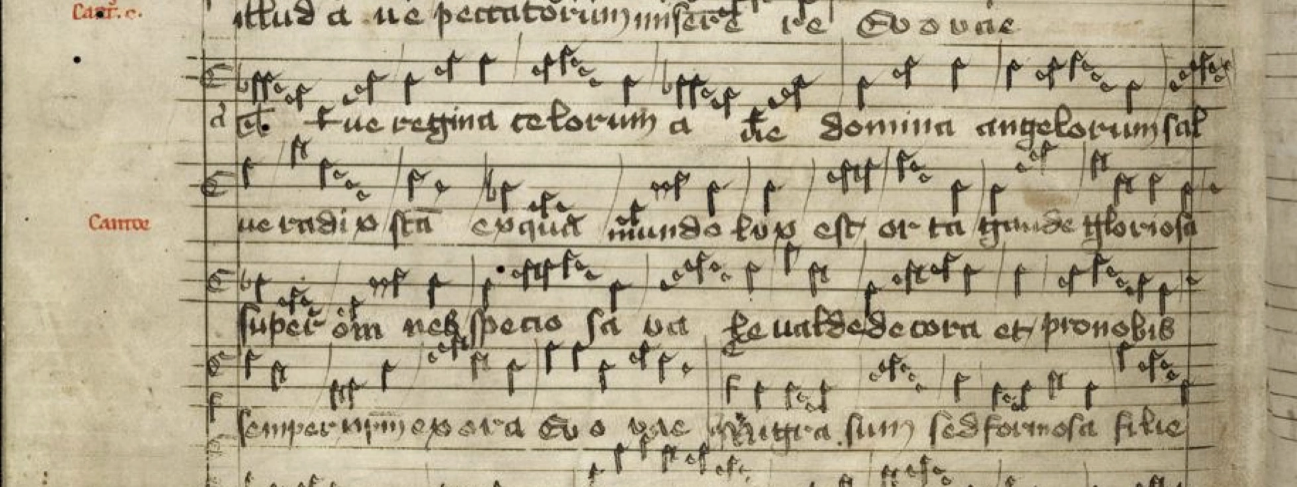 Cant. e.
illud a ue peccatorum misere re Evovae
a ue regina celorum a ue domina angelorum sal
ue radix sctā ex qua mundo lux est orta gaude gloriosa
Cantor
super om nes specio sa va le valde decora et pro nobis
semper xpm exora Evovae Nigra sum sed formosa filie